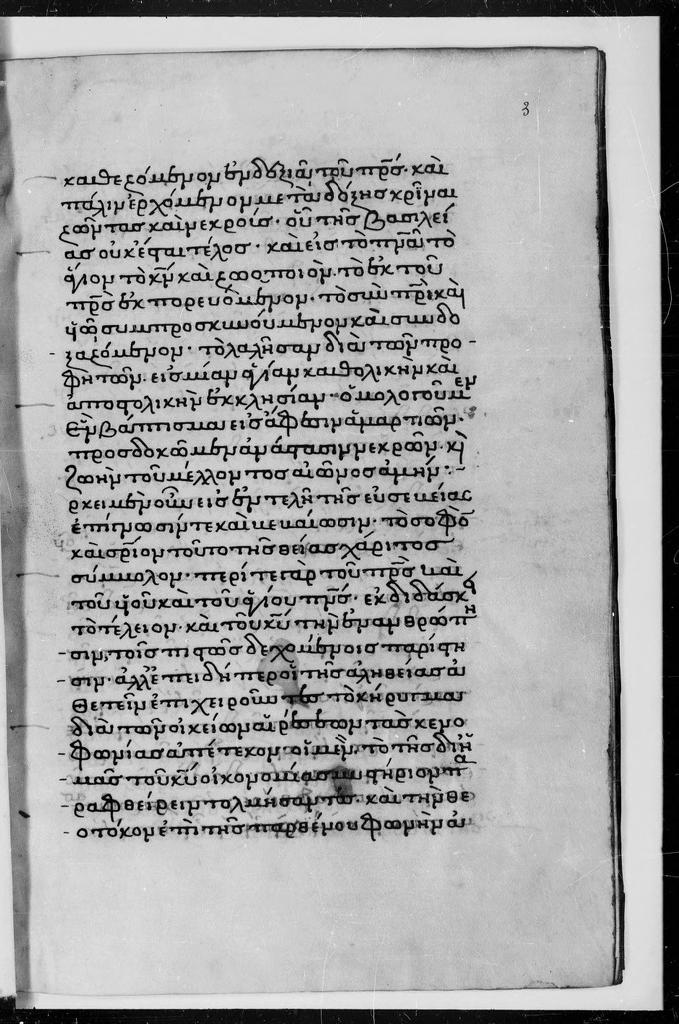 3
καθεζόμενον ἐν δεξιᾷ τοῦ πρ̅ς· καὶ
πάλιν ἐρχόμενον μετὰ δόξης κρῖναι
ζῶντας καὶ νεκρούς· οὗ τῆς βασιλεί
ας οὐκ ἔσται τέλος· καὶ εἰς τὸ πν̅α τὸ
ἅγιον τὸ κ̅ν καὶ ζωοποιὸν· τὸ ἐκ τοῦ
πρ̅ς ἐκπορευόμενον· τὸ σὺν πρ̅ι καὶ
υἱῶ συμπροσκυνούμενον καὶ συνδο
ξαζόμενον· τὸ λαλῆσαν διὰ τῶν προ
φητῶν· εἰς μίαν ἁγίαν καθολικὴν καὶ
ἀποστολικὴν ἐκκλησίαν· ὁμολογοῦμεν
ἓν βάπτισμα εἰς ἄφεσιν ἁμαρτιῶν·
προσδοκῶμεν ἀνάστασιν νεκρῶν· κ̀
ζωὴν τοῦ μέλλοντος αἰῶνος ἀμήν:–
ρκει μὲν οὖν εἰς ἐντελῆ τῆς εὐσεβείας
ἐπίγνωσίν τε καὶ βεβαίωσιν· τὸ σοφὸν
καὶ σρ̅ιον τοῦτο τῆς θείας χάριτος
σύμβολον· περί τε γὰρ τοῦ πρ̅ς καὶ
τοῦ υἱοῦ καὶ τοῦ ἁγίου πν̅ς· ἐκδιδάσκει
τὸ τέλειον· καὶ τοῦ κ̅υ τὴν ἐνανθρώπη
σιν, τοῖς πιστῶς δεχομένοις παρίστη
σιν· ἀλλ' ἐπειδήπερ οἱ τῆς ἀληθείας ἀ
θετεῖν ἐπιχειροῦντες τὸ κήρυγμα
διὰ τῶν οἰκείων αἱρέσεων τὰς κενο
φωνίας ἀπέτεκον· οἱ μὲν, τὸ τῆς δι' ἡ
μᾶς τοῦ κ̅υ οἰκονομίας μυστήριον πα
ραφθείρειν τολμήσαντες· καὶ τὴν θε
οτόκον ἐπὶ τῆς παρθένου φωνὴν ἀ